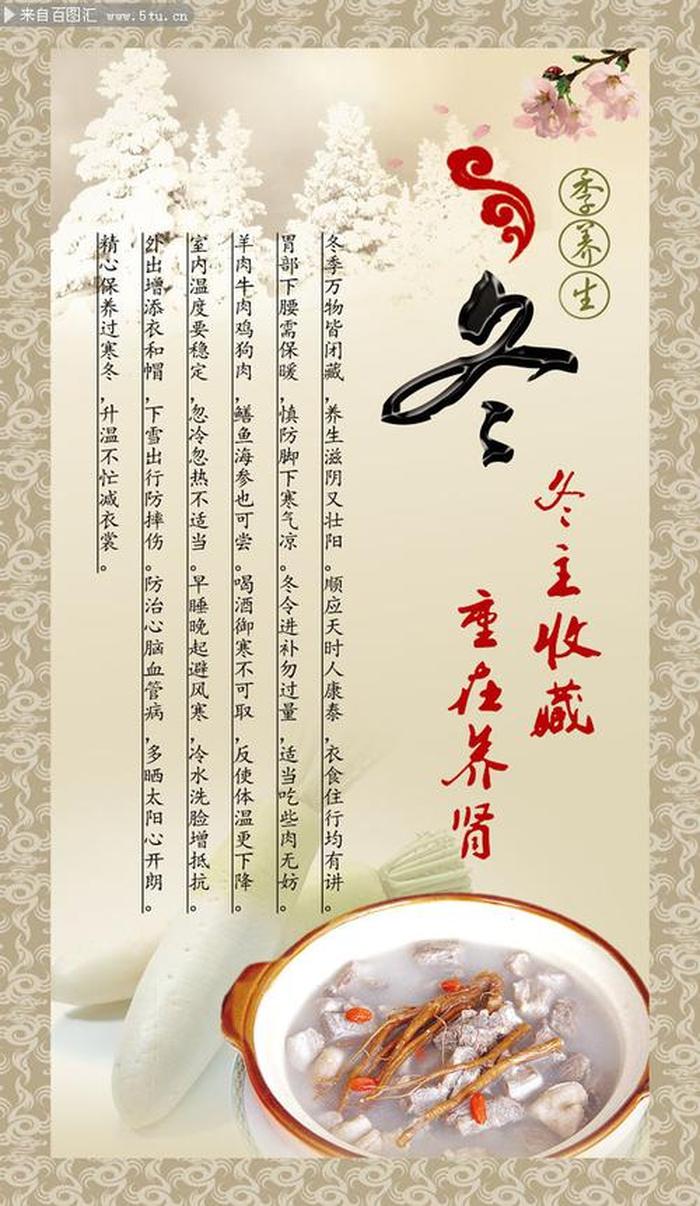 来自百图汇 www.5tu.cn
季养生
冬
冬主收藏
重在养肾
冬季万物皆闭藏，养生滋阴又壮阳。顺应天时人康泰，衣食住行均有讲。
胃部下腰需保暖，慎防脚下寒气凉。冬令进补勿过量，适当吃些肉无妨。
羊肉牛肉鸡狗肉，鳝鱼海参也可尝。喝酒御寒不可取，反使体温更下降。
室内温度要稳定，忽冷忽热不适当。早睡晚起避风寒，冷水洗脸增抵抗。
外出增添衣和帽，下雪出行防摔伤。防治心脑血管病，多晒太阳心开朗。
精心保养过寒冬，升温不忙减衣裳。